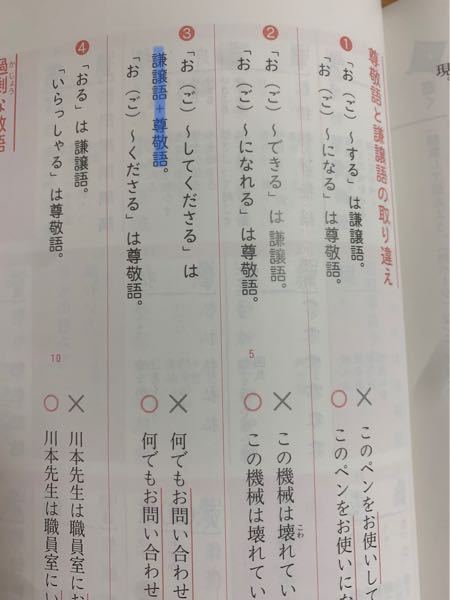 現
尊敬語と謙譲語の取り違え
❶「お（ご）〜する」は謙譲語。
「お（ご）〜になる」は尊敬語。
×このペンをお使いして
○このペンをお使いにな
❷「お（ご）〜できる」は謙譲語。
「お（ご）〜になれる」は尊敬語。
5
×この機械は壊こわれてい
○この機械は壊れてい
❸「お（ご）〜してくださる」は
謙譲語＋尊敬語。
「お（ご）〜くださる」は尊敬語。
×何でもお問い合わせ
○何でもお問い合わせ
❹「おる」は謙譲語。
「いらっしゃる」は尊敬語。
10
×川本先生は職員室にお
○川本先生は職員室にい
過剰かじょうな敬語